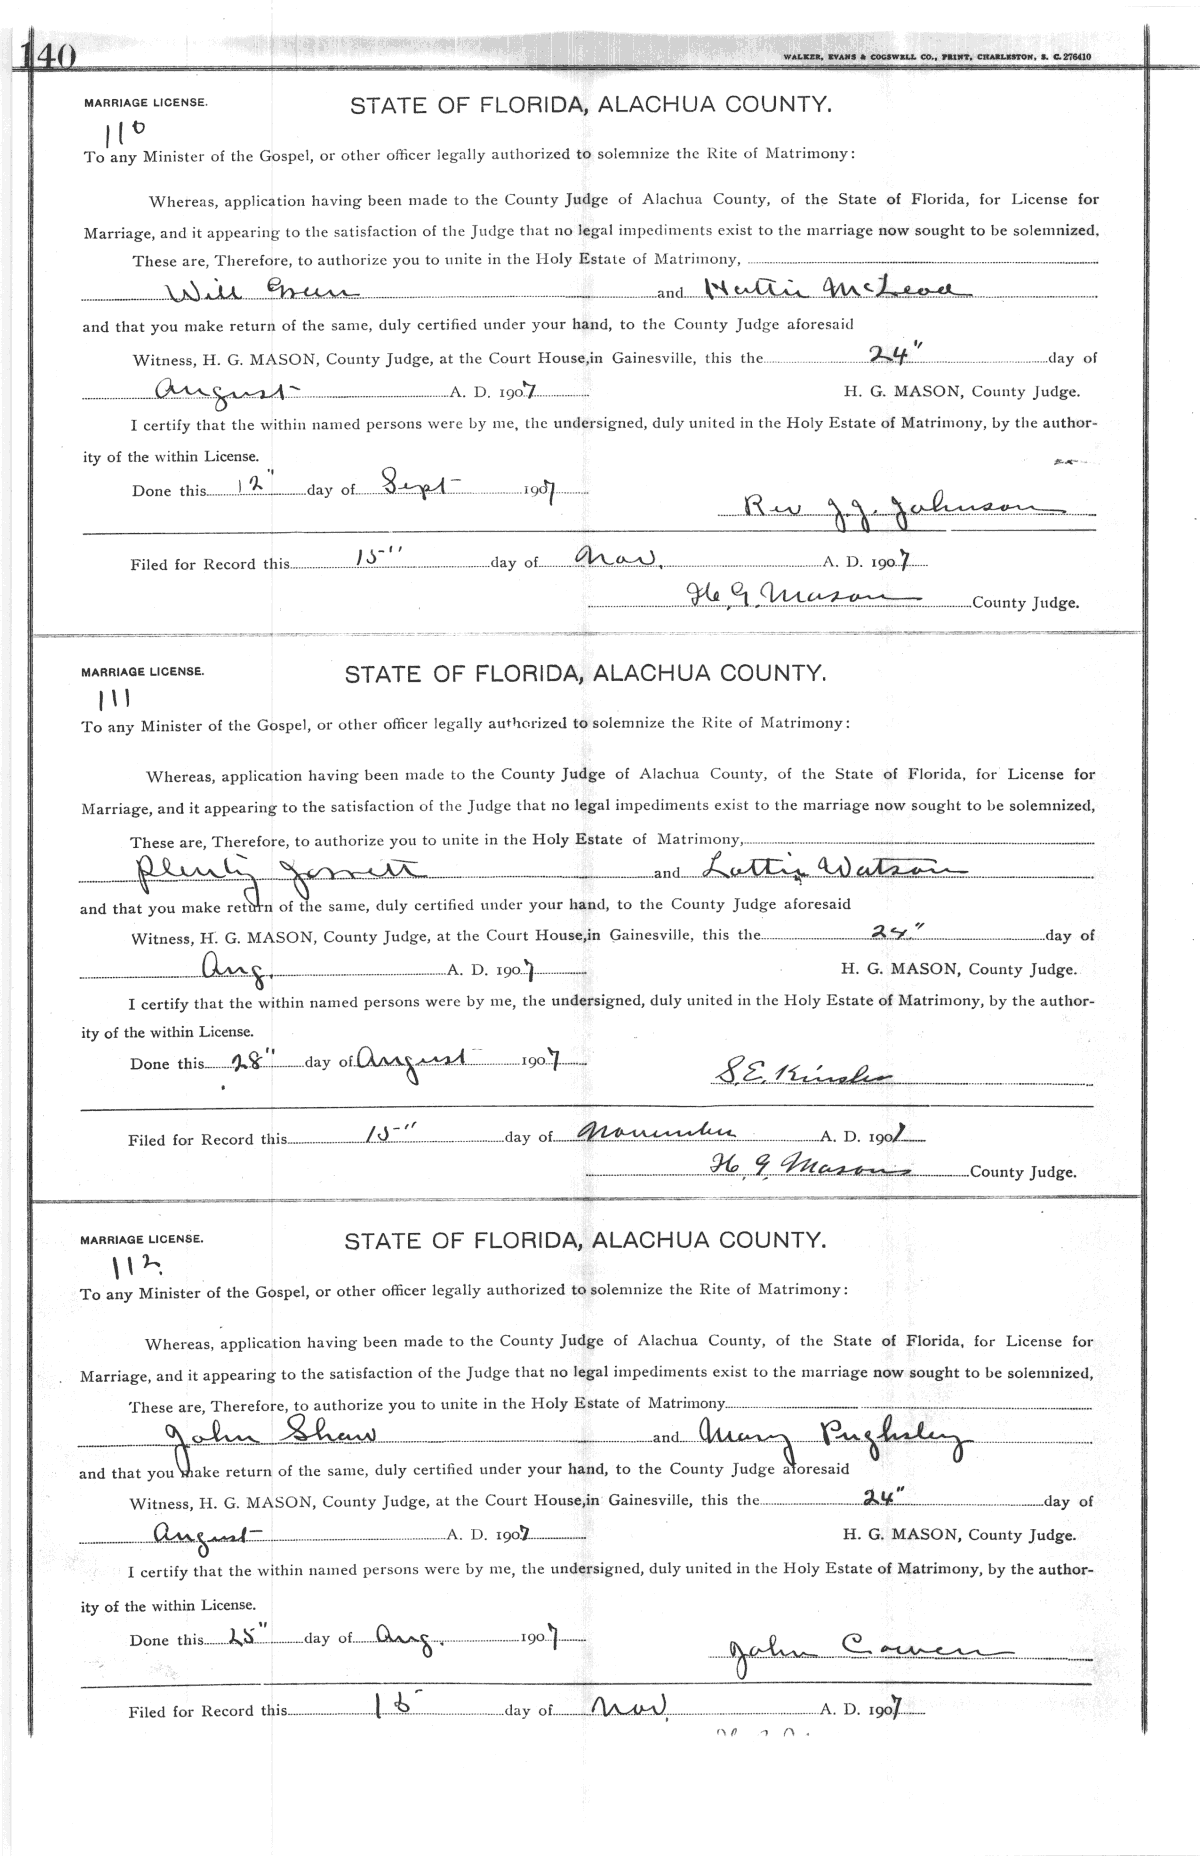 140
WALKER, EVANS & COGSWELL CO., PRINT, CHARLESTON, S. C. 276410
MARRIAGE LICENSE. STATE OF FLORIDA, ALACHUA COUNTY.
110
To any Minister of the Gospel, or other officer legally authorized to solemnize the Rite of Matrimony:
Whereas, application having been made to the County Judge of Alachua County, of the State of Florida, for License for
Marriage, and it appearing to the satisfaction of the Judge that no legal impediments exist to the marriage now sought to be solemnized,
These are, Therefore, to authorize you to unite in the Holy Estate of Matrimony,
Will Green and Hattie McLeod
and that you make return of the same, duly certified under your hand, to the County Judge aforesaid
Witness, H. G. MASON, County Judge, at the Court House, in Gainesville, this the 24" day of
August A. D. 1907 H. G. MASON, County Judge.
I certify that the within named persons were by me, the undersigned, duly united in the Holy Estate of Matrimony, by the author-
ity of the within License.
Done this 12" day of Sept 1907
Rev J. J. Johnson
Filed for Record this 15" day of Nov. A. D. 1907
H. G. Mason County Judge.
MARRIAGE LICENSE. STATE OF FLORIDA, ALACHUA COUNTY.
111
To any Minister of the Gospel, or other officer legally authorized to solemnize the Rite of Matrimony:
Whereas, application having been made to the County Judge of Alachua County, of the State of Florida, for License for
Marriage, and it appearing to the satisfaction of the Judge that no legal impediments exist to the marriage now sought to be solemnized,
These are, Therefore, to authorize you to unite in the Holy Estate of Matrimony,
Plenty and Lottie Watson
and that you make return of the same, duly certified under your hand, to the County Judge aforesaid
Witness, H. G. MASON, County Judge, at the Court House, in Gainesville, this the 24" day of
Aug. A. D. 1907 H. G. MASON, County Judge.
I certify that the within named persons were by me, the undersigned, duly united in the Holy Estate of Matrimony, by the author-
ity of the within License.
Done this 28" day of August 1907
S. E.
Filed for Record this 15" day of November A. D. 1907
H. G. Mason County Judge.
MARRIAGE LICENSE. STATE OF FLORIDA, ALACHUA COUNTY.
112.
To any Minister of the Gospel, or other officer legally authorized to solemnize the Rite of Matrimony:
Whereas, application having been made to the County Judge of Alachua County, of the State of Florida, for License for
Marriage, and it appearing to the satisfaction of the Judge that no legal impediments exist to the marriage now sought to be solemnized,
These are, Therefore, to authorize you to unite in the Holy Estate of Matrimony
John Shaw and Mary Pughsley
and that you make return of the same, duly certified under your hand, to the County Judge aforesaid
Witness, H. G. MASON, County Judge, at the Court House, in Gainesville, this the 24" day of
August A. D. 1907 H. G. MASON, County Judge.
I certify that the within named persons were by me, the undersigned, duly united in the Holy Estate of Matrimony, by the author-
ity of the within License.
Done this 25" day of Aug. 1907
John Cowen
Filed for Record this 15 day of Nov. A. D. 1907